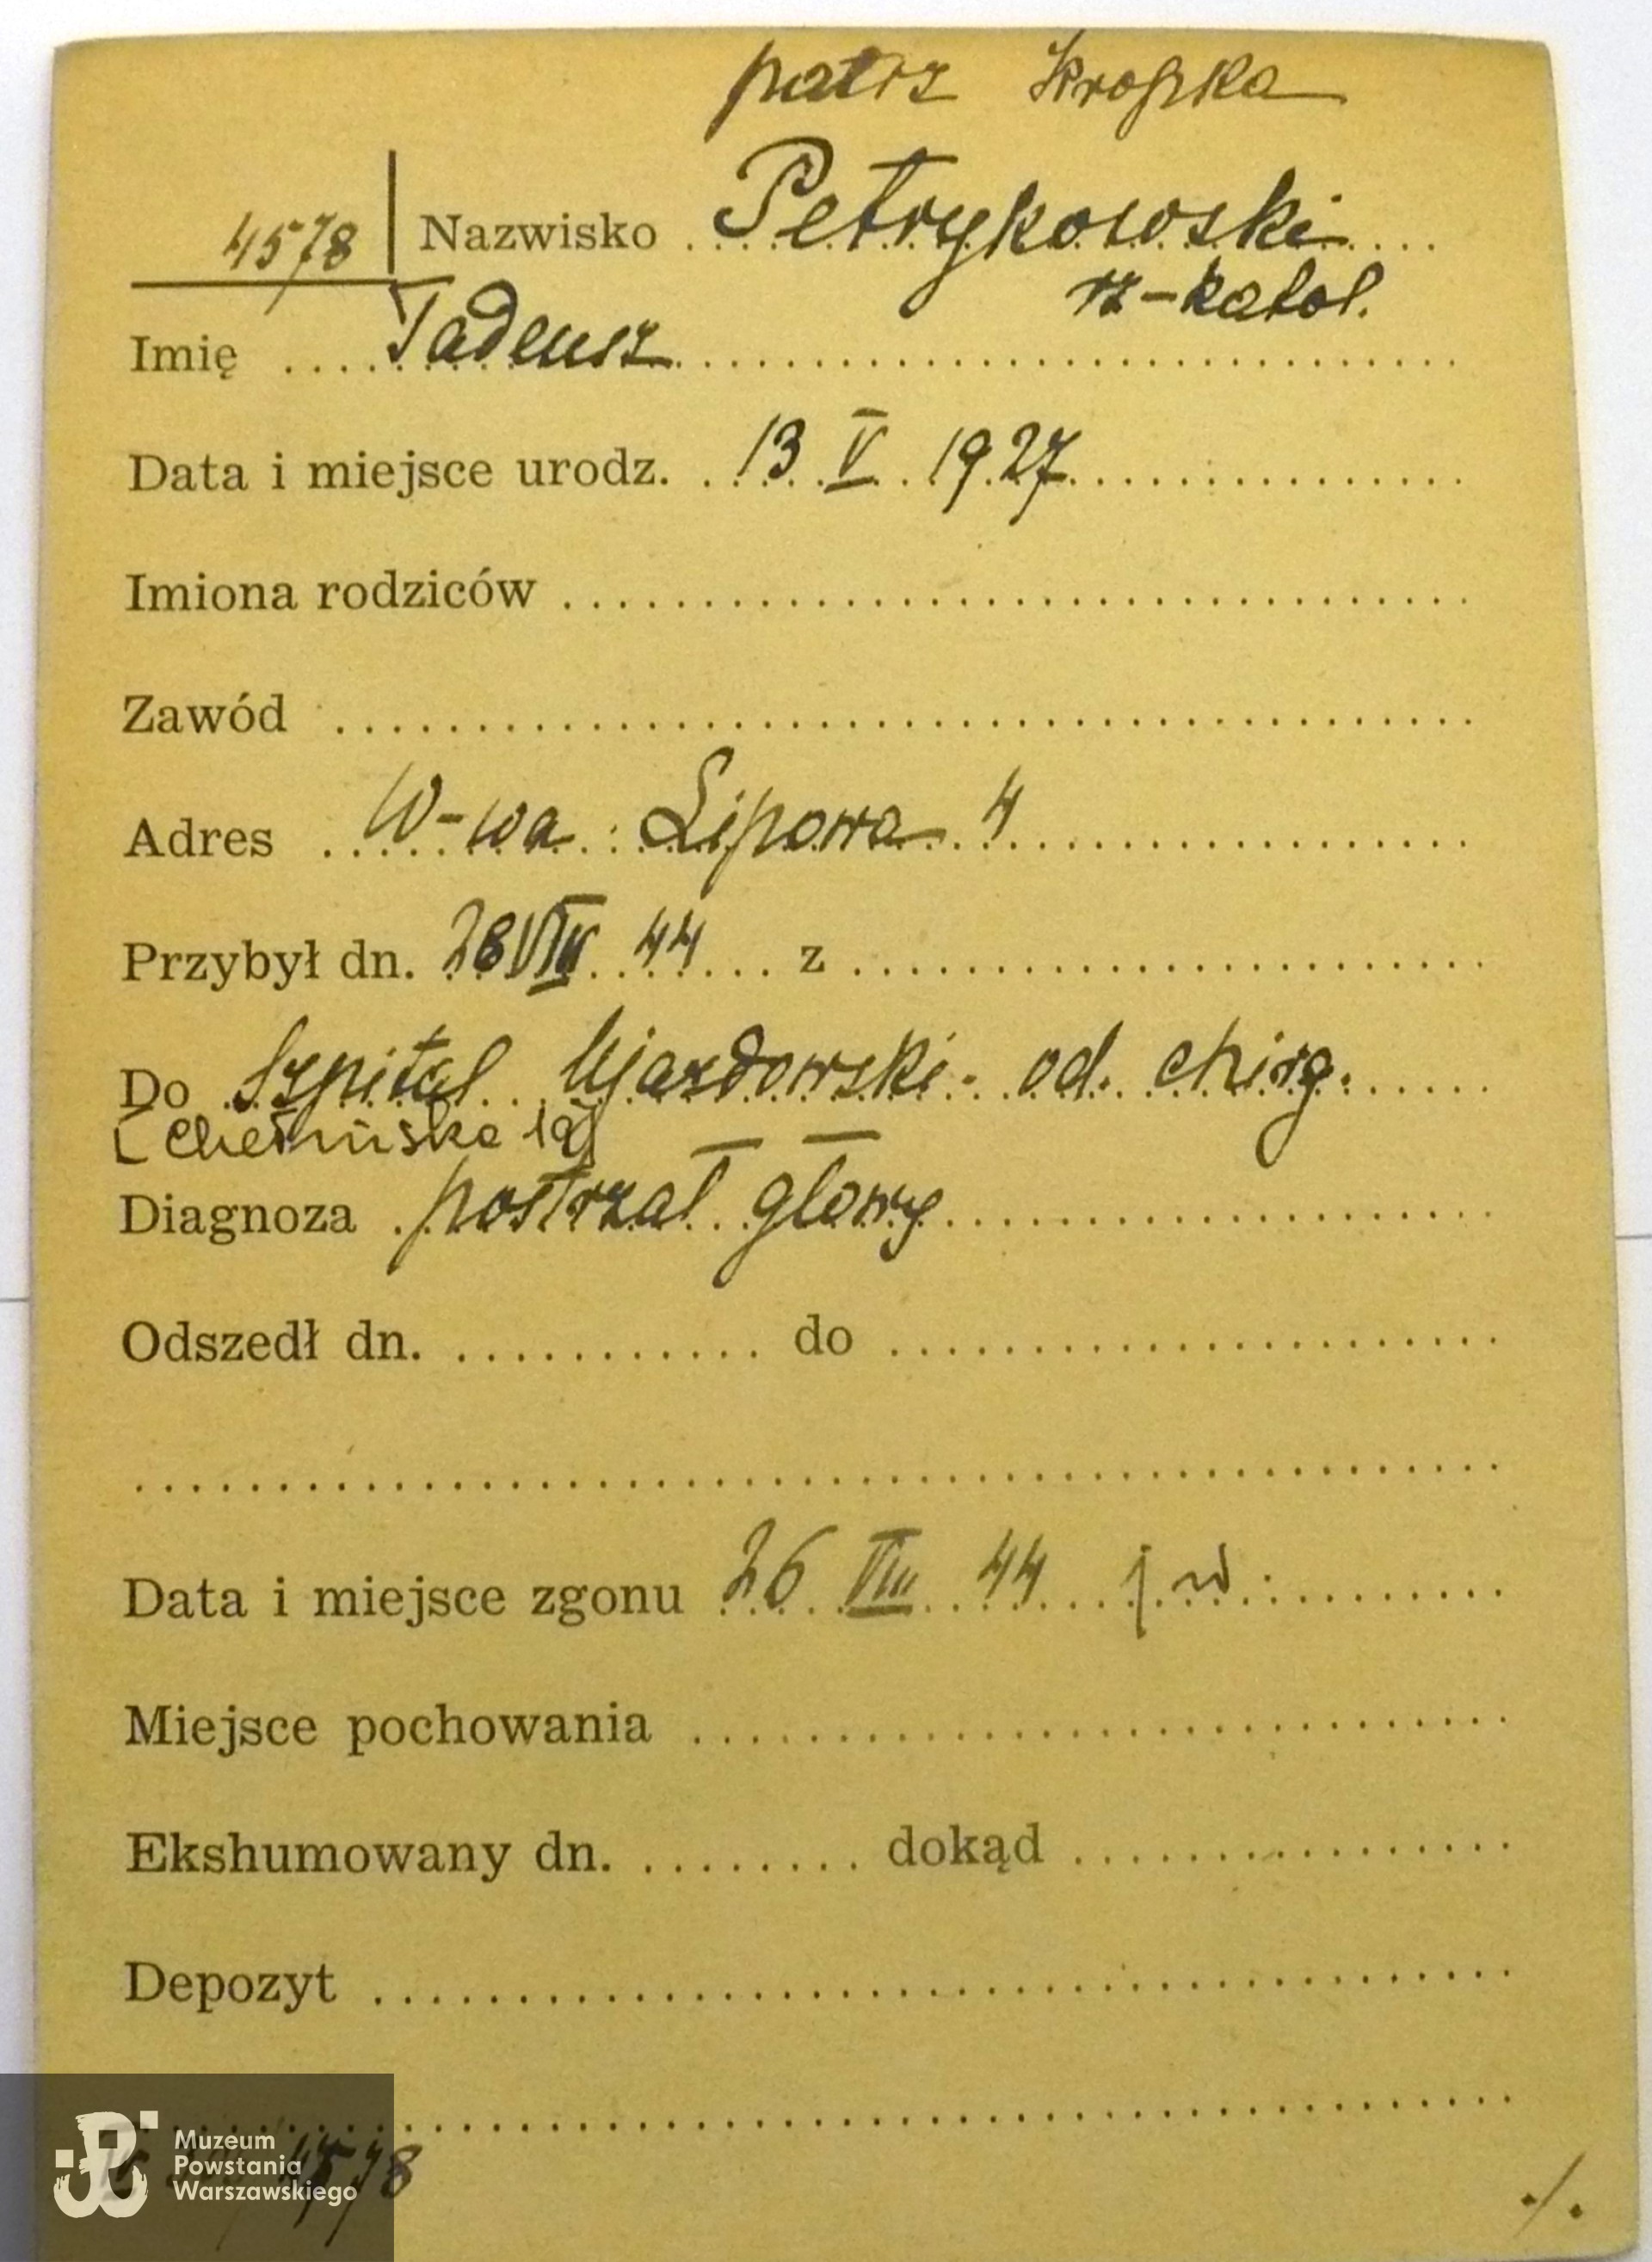 patrz Kropka
4578 Nazwisko Petrykowski
rz-katol.
Imię Tadeusz
Data i miejsce urodz. 13 V 1927
Imiona rodziców
Zawód
Adres W-wa Lipowa 4
Przybył dn. 28 VIII 44 z
Do Szpital Ujazdowski od. chirg.
[Chełmska 19]
Diagnoza postrzał głowy
Odszedł dn. do
Data i miejsce zgonu 26 VIII 44 j w.
Miejsce pochowania
Ekshumowany dn. dokąd
Depozyt
4578
Muzeum
Powstania
Warszawskiego
./.